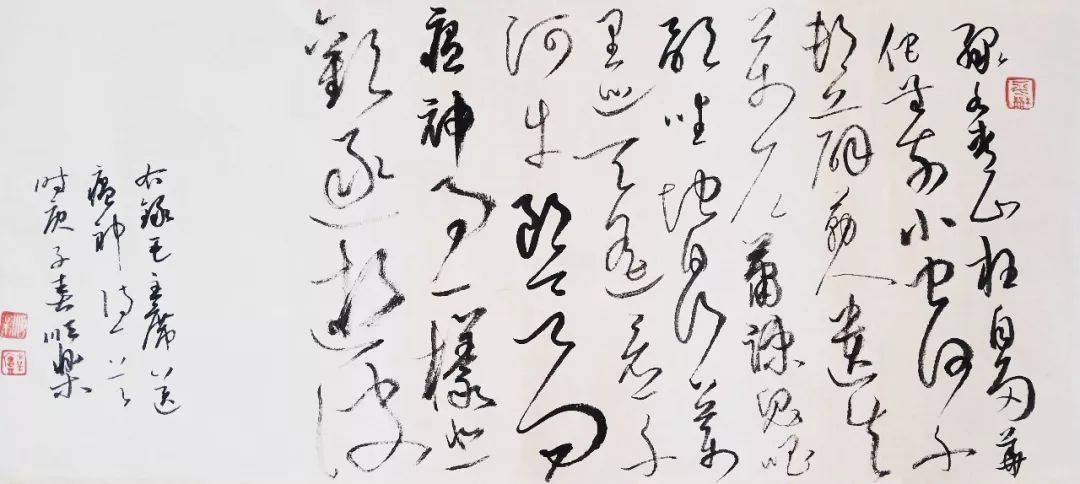 绿水青山枉自多華
佗無奈小虫何千
村薜荔人遺矢
萬户蕭疎鬼唱
歌坐地日行八萬
里巡天遥看一千
河牛郎欲问
瘟神事一樣悲
歡逐逝波
右録毛主席送
瘟神诗一首
时庚子春